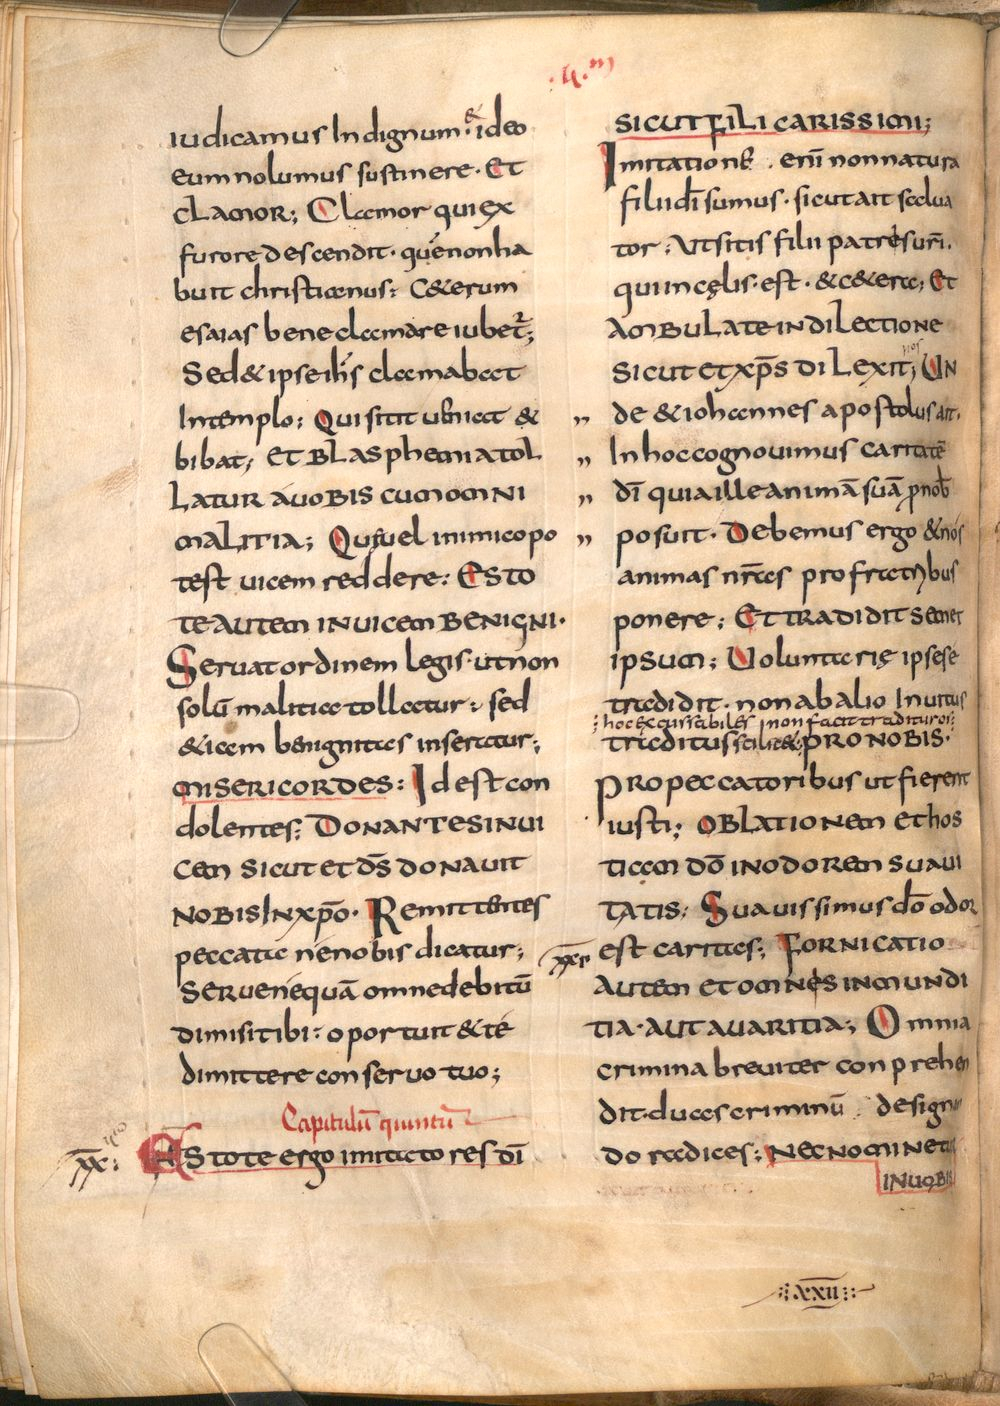 .4.m
iudicamus Indignum · & ideo
eum nolumus sustinere · Et
clamor; Clamor qui ex
furore descendit · quē non ha
buit christianus: C&erum
esaias bene clamare iubet;
Sed & ipse ihs clamabat
Intemplo: Qui sitit ueniat &
bibat; et blasphemia tol
latur auobis cum omni
malitia; Quę uel inimico po
test uicem reddere: Esto
te autem inuicem benigni ·
Seruat ordinem legis · ut non
solū malitia tollatur; sed
& iam benignitas inseratur;
misericordes: Id est con
dolentes; Donantes inui
cem sicut et ds̄ donauit
nobis In xp̄o · Remittentes
peccata ne nobis dicatur;
Serue nequā omne debitū
dimisi tibi: oportuit & te
dimittere conseruo tuo;
Capitulū quintū
Estote ergo imitatores dī
sicut fili carissimi;
Imitatione . enī non natura
filii dī sumus · sicut ait salua
tor; Ut sitis filii patris ur̄i.
qui in cęlis · est · & c&era; Et
ambulate in dilectione
sicut et xp̄s dilexit nos; Un
de & iohannes apostolus ait.
„ In hoc cognouimus caritatē
„ dī quia ille animā suā p nob
„ posuit · Debemus ergo & nos
animas nr̄as pro fratribus
ponere; Et tradidit semet
ipsum; Uoluntarię ipse se
tradidit · non ab alio Inuitus
hoc excussabiles non facit traditores
traditus scilic& pro nobis ·
Pro peccatoribus ut fierent
iusti; oblationem et hos
tiam dō in odorem suaui
tatis; Suauissimus dō odor
est caritas; Fornicatio
autem et omnes inmundi
tia · aut auaritia; Omnia
crimina breuiter conprehen
dit · duas criminū designa
do radices; nec nominetur
inuobis
xxii